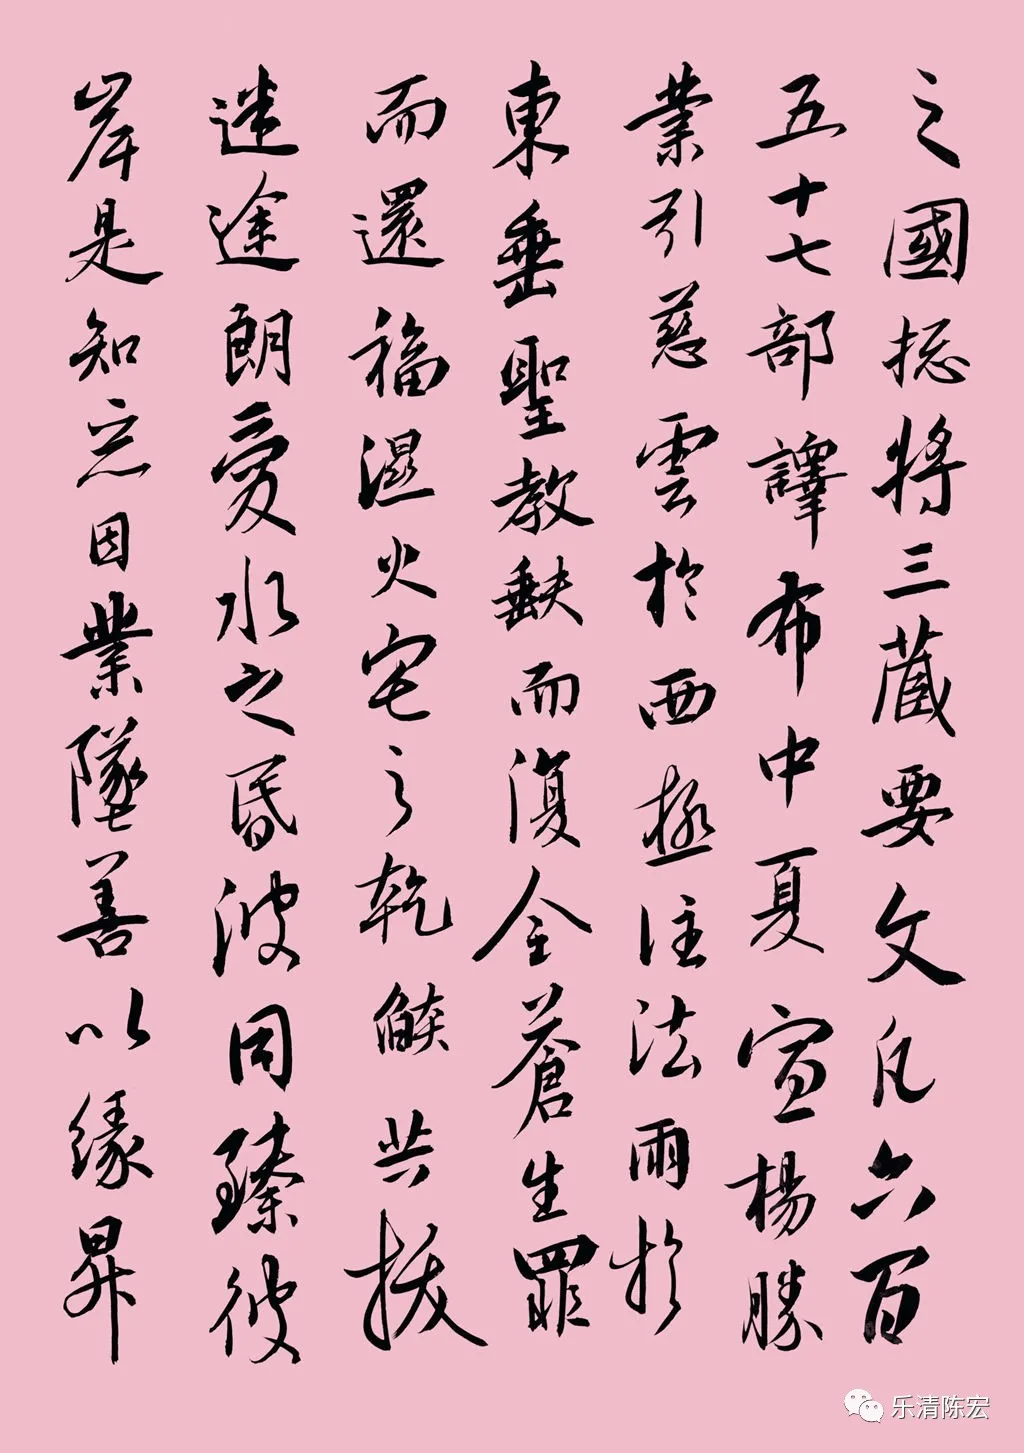 之國揔将三蔵要文凡六百
五十七部譯布中夏宣楊勝
業引慈雲於西極注法雨於
東垂聖教缺而復全蒼生罪
而還福濕火宅之乾燄共拔
迷途朗愛水之昏波同臻彼
岸是知恶因業墜善以緣昇
乐清陈宏